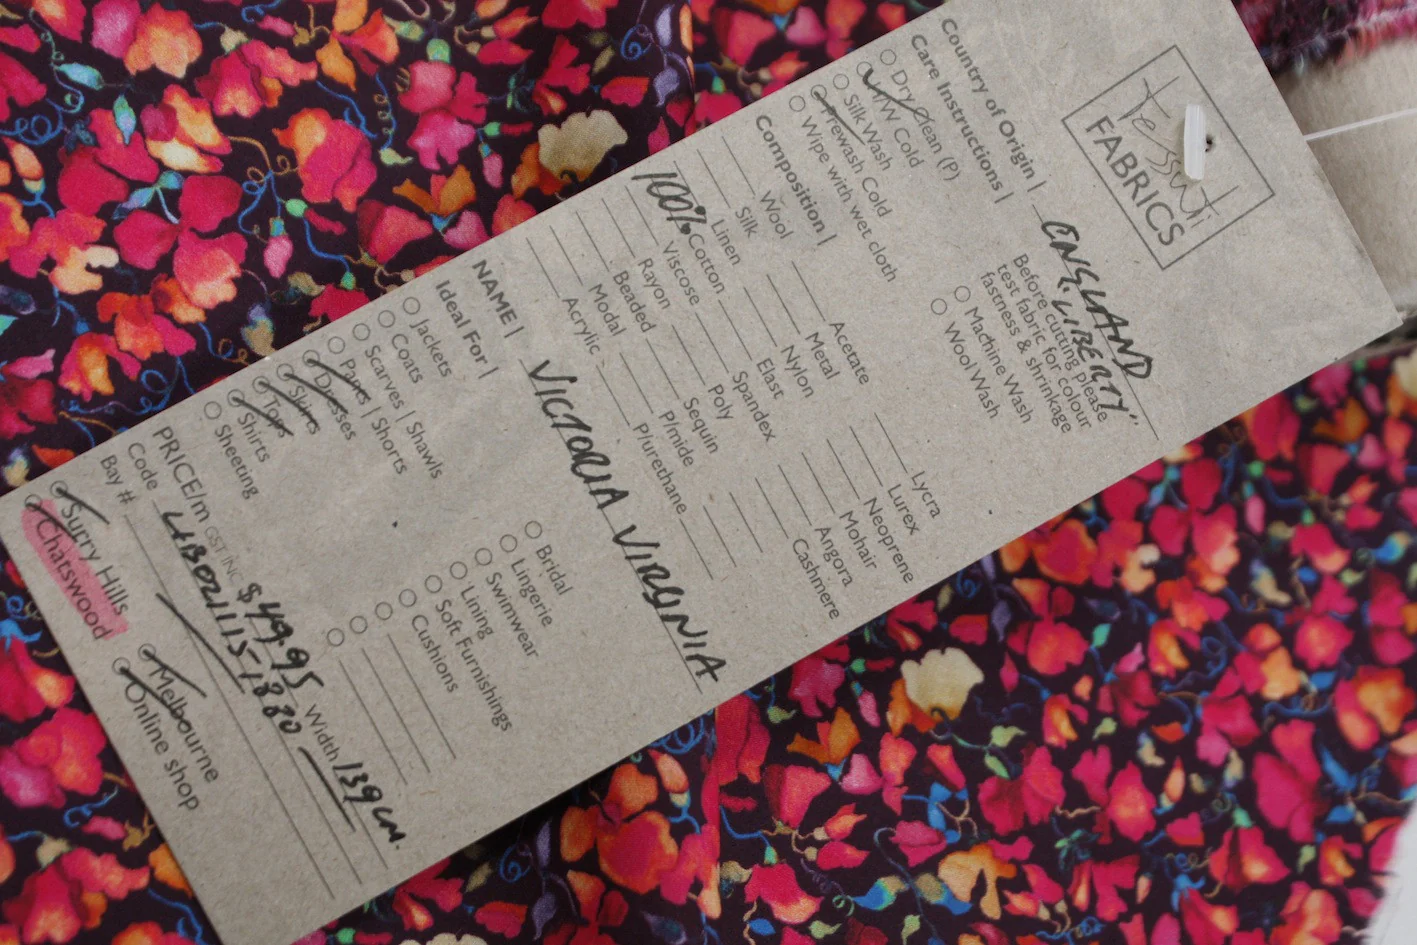 Tessuti
FABRICS
Country of Origin | ENGLAND
"LIBERTY"
Care Instructions |
Before cutting please
test fabric for colour
fastness & shrinkage
Dry Clean (P)
H/W Cold
Silk Wash
Prewash Cold
Wipe with wet cloth
Machine Wash
Wool Wash
Composition |
Wool
Silk
Linen
100% Cotton
Viscose
Rayon
Beaded
Modal
Acrylic
Acetate
Metal
Nylon
Elast
Spandex
Poly
Sequin
P/mide
P/urethane
Lycra
Lurex
Neoprene
Mohair
Angora
Cashmere
NAME | VICTORIA VIRGINIA
Ideal For |
Jackets
Coats
Scarves | Shawls
Pants | Shorts
Dresses
Skirts
Tops
Shirts
Sheeting
Bridal
Lingerie
Swimwear
Lining
Soft Furnishings
Cushions
PRICE/m GST INC $49.95 Width 139cm.
Code LIB021115-1880
Bay #
Surry Hills
Chatswood
Melbourne
Online shop